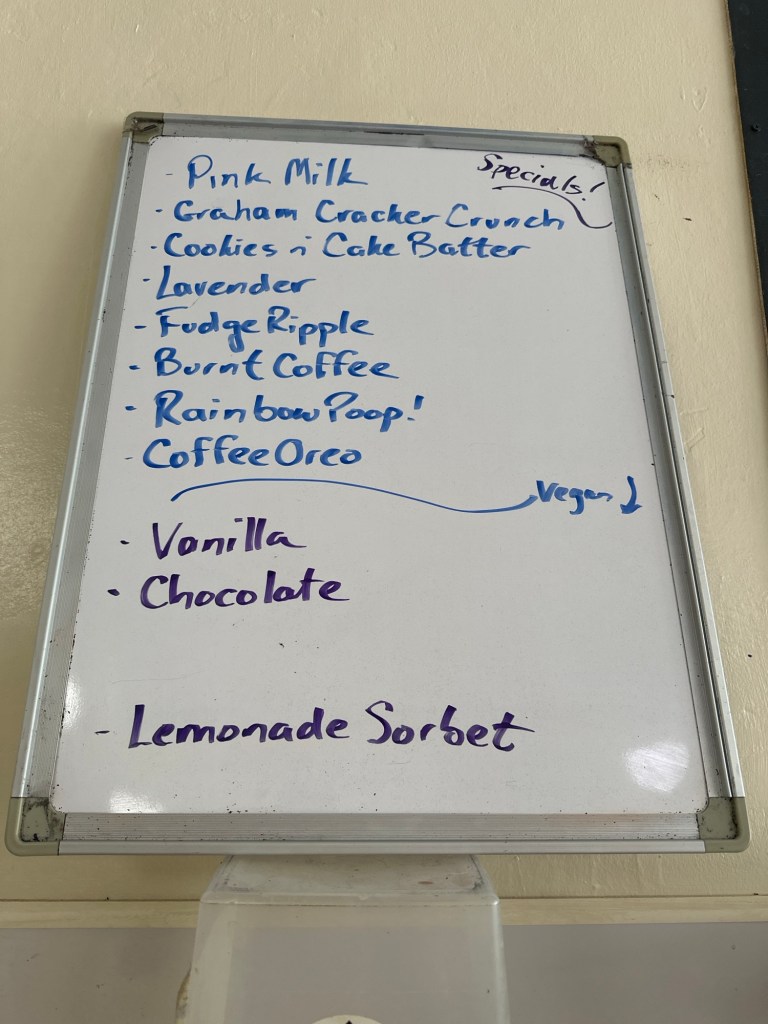 Specials!
- Pink Milk
· Graham Cracker Crunch
· Cookies n Cake Batter
· Lavender
- Fudge Ripple
· Burnt Coffee
· Rainbow Poop!
- Coffee Oreo
Vegan ↓
· Vanilla
· Chocolate
- Lemonade Sorbet